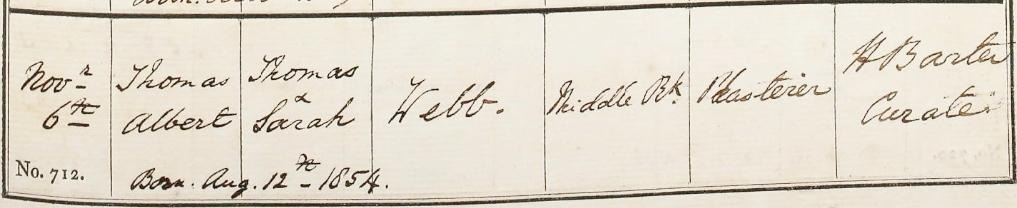 Novr 6th
Thomas Albert
Thomas & Sarah
Webb.
Middle Rk.
Plasterer
H Barter Curate
No. 712.
Born. Aug. 12th 1854.